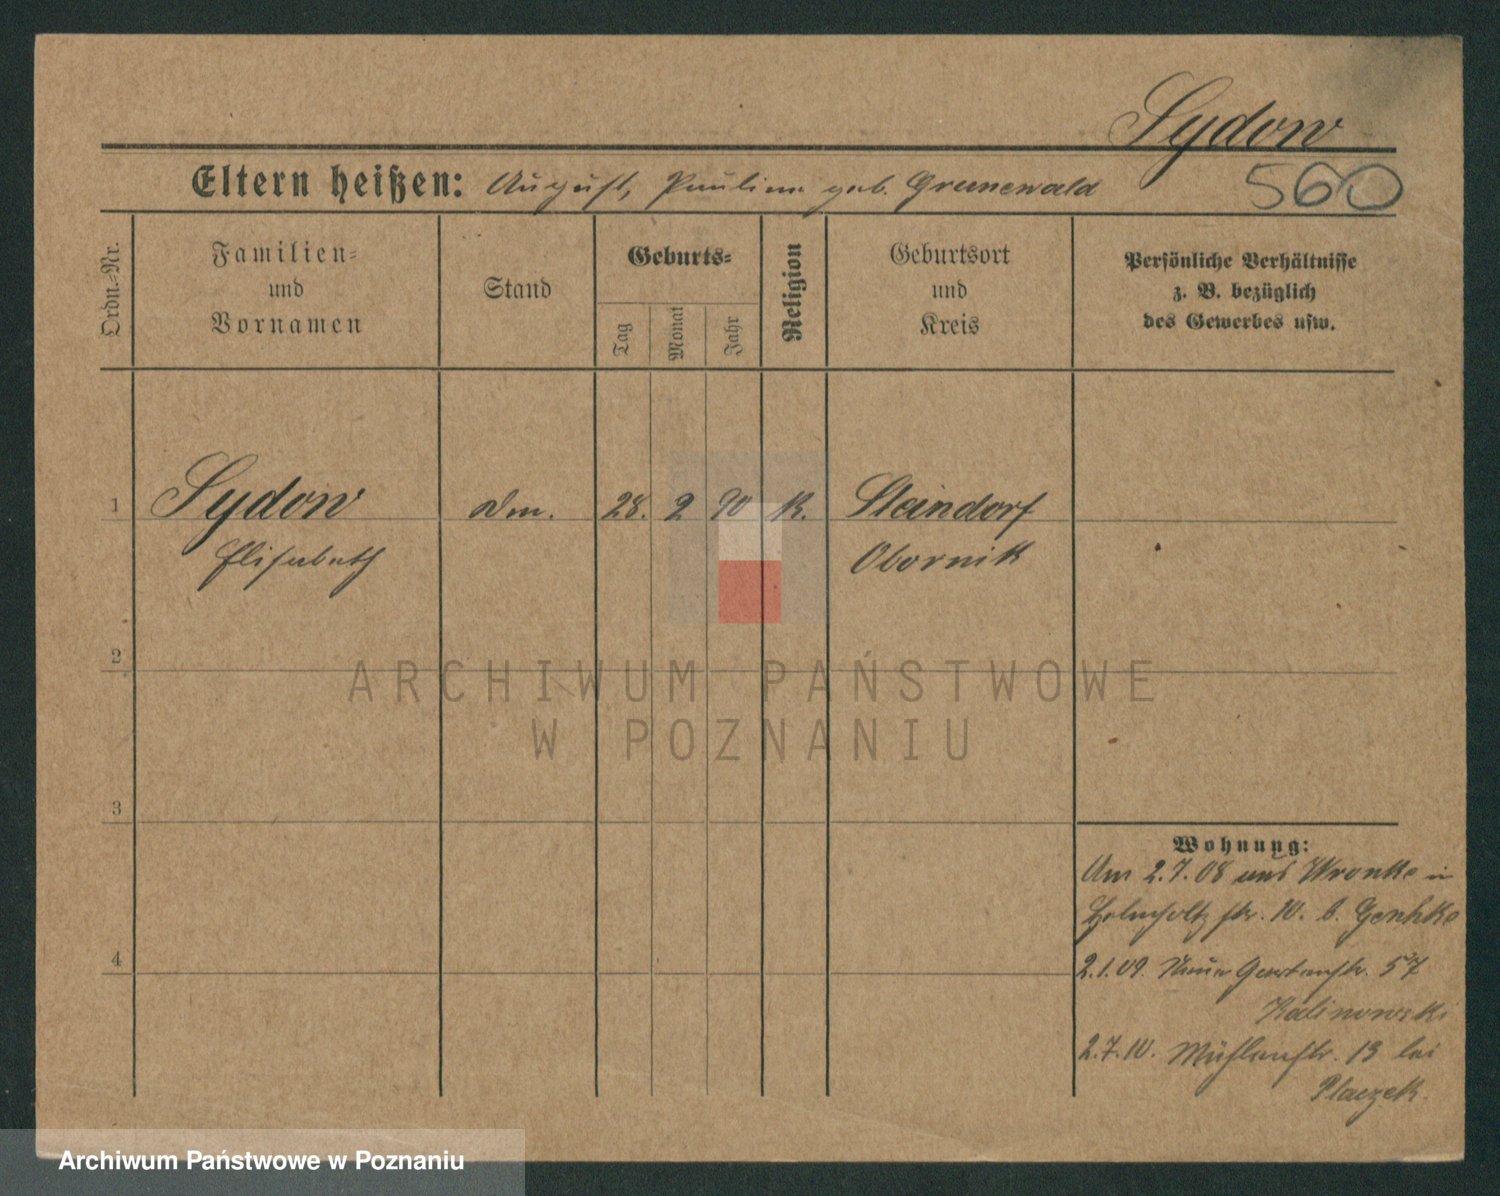 Sydow
Eltern heißen: August, Pauline geb. Grunewald 560
Ordn.=Nr.
Familien=
und
Vornamen
Stand
Geburts=
Tag
Monat
Jahr
Religion
Geburtsort
und
Kreis
Persönliche Verhältnisse
z. B. bezüglich
des Gewerbes usw.
1 Sydow 28. 2 90 K. Steindorf
Elisabeth Obornik
2
ARCHIWUM PAŃSTWOWE
W POZNANIU
3
Wohnung:
Am 2.7.08 aus Wronke in
Helmholtzstr. 10. b.
4
2.1.09. Neue Gartenstr. 57
Kalinowski
2.7.10. Mühlenstr. 13 bei
Placzek.
Archiwum Państwowe w Poznaniu